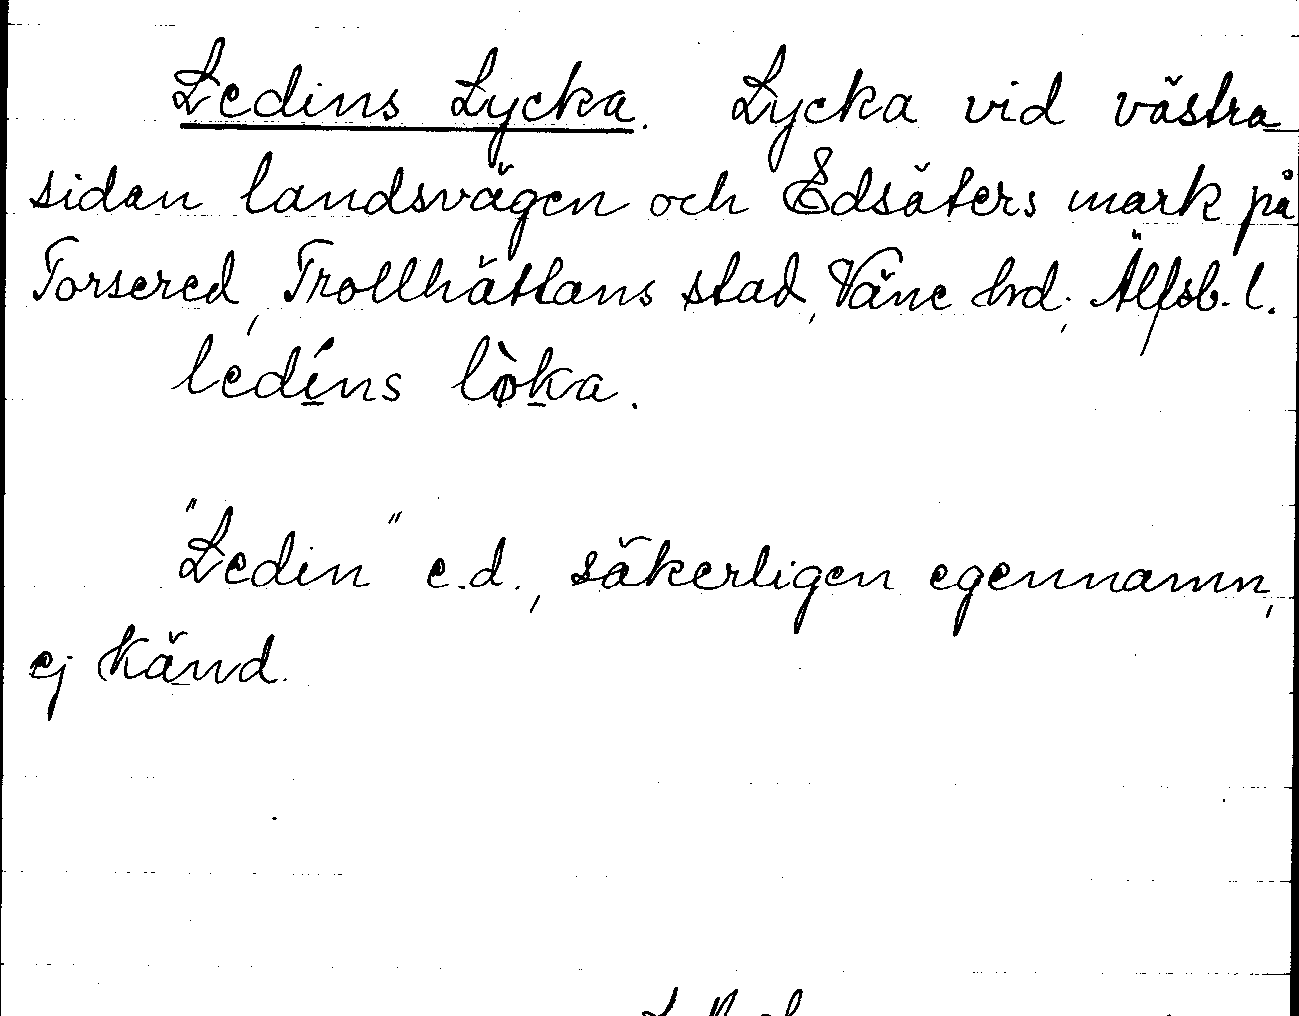 Ledins Lycka. Lycka vid västra
sidan landsvägen och Edsäters mark på
Torsered, Trollhättans stad, Väne hd, Älfsb. l.
ledíns lò̵ka.
"Ledin" e.d., säkerligen egennamn,
ej känd.